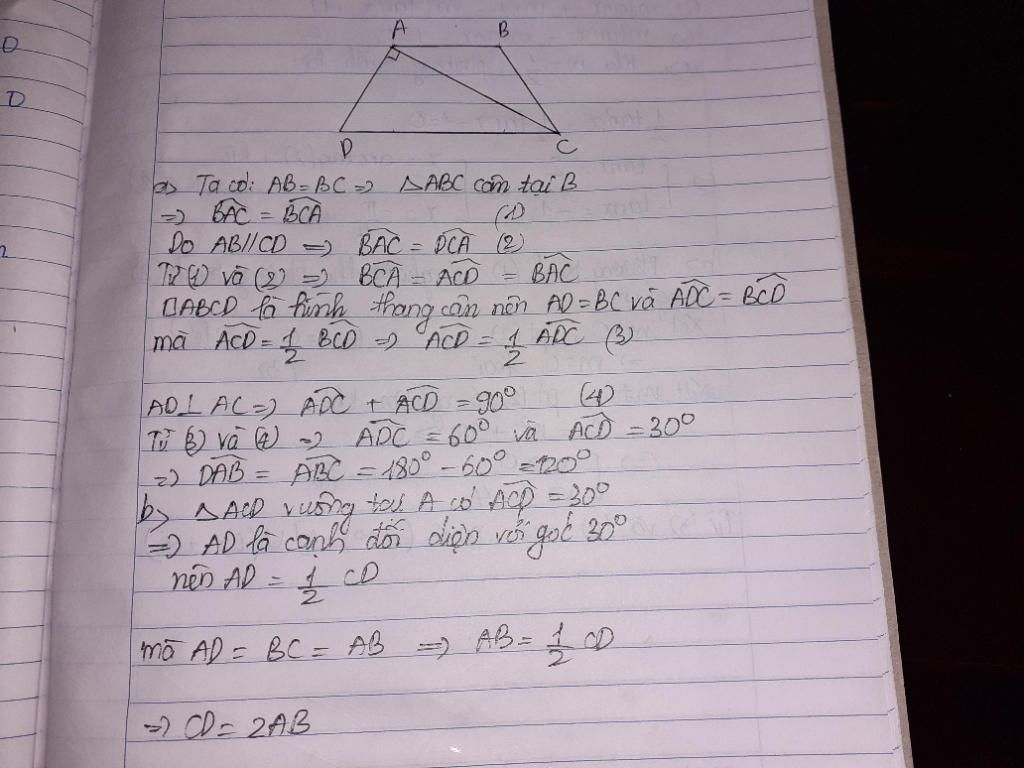 D
D
A B
D C
a> Ta có: AB = BC => △ABC cân tại B
=> \widehat{BAC} = \widehat{BCA} (1)
Do AB//CD => \widehat{BAC} = \widehat{DCA} (2)
Từ (1) và (2) => \widehat{BCA} = \widehat{ACD} = \widehat{BAC}
□ABCD là hình thang cân nên AD = BC và \widehat{ADC} = \widehat{BCD}
mà \widehat{ACD} = \frac{1}{2} \widehat{BCD} => \widehat{ACD} = \frac{1}{2} \widehat{ADC} (3)
AD ⊥ AC => \widehat{ADC} + \widehat{ACD} = 90° (4)
Từ (3) và (4) => \widehat{ADC} = 60° và \widehat{ACD} = 30°
=> \widehat{DAB} = \widehat{ABC} = 180° - 60° = 120°
b> △ACD vuông tại A có \widehat{ACD} = 30°
=> AD là cạnh đối diện với góc 30°
nên AD = \frac{1}{2} CD
mà AD = BC = AB => AB = \frac{1}{2} CD
=> CD = 2AB